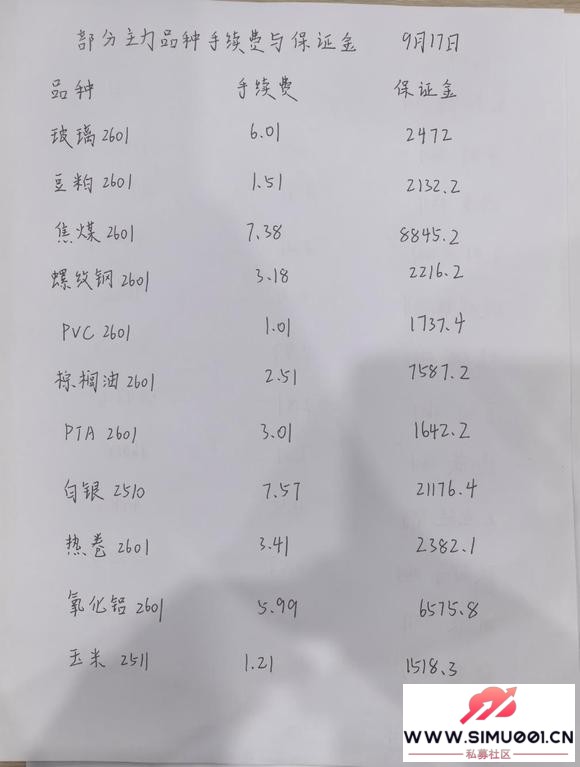 部分主力品种手续费与保证金 9月17日
品种 手续费 保证金
玻璃2601 6.01 2472
豆粕2601 1.51 2132.2
焦煤2601 7.38 8845.2
螺纹钢2601 3.18 2216.2
PVC 2601 1.01 1737.4
棕榈油2601 2.51 7587.2
PTA 2601 3.01 1642.2
白银2510 7.57 21176.4
热卷2601 3.41 2382.1
氧化铝2601 5.99 6575.8
玉米 2511 1.21 1518.3
WWW.SIMU001.CN
私募社区